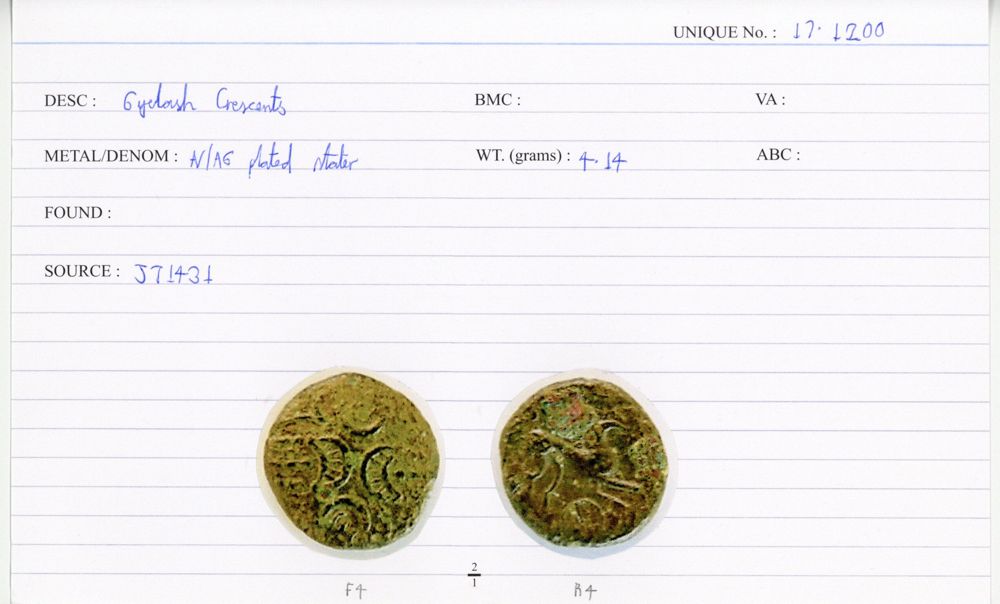 UNIQUE No. : 17.1200
DESC : Eyelash Crescents BMC : VA :
METAL/DENOM : AV/AE plated stater WT. (grams) : 4.14 ABC :
FOUND :
SOURCE : J71431
2
1
F4 R4